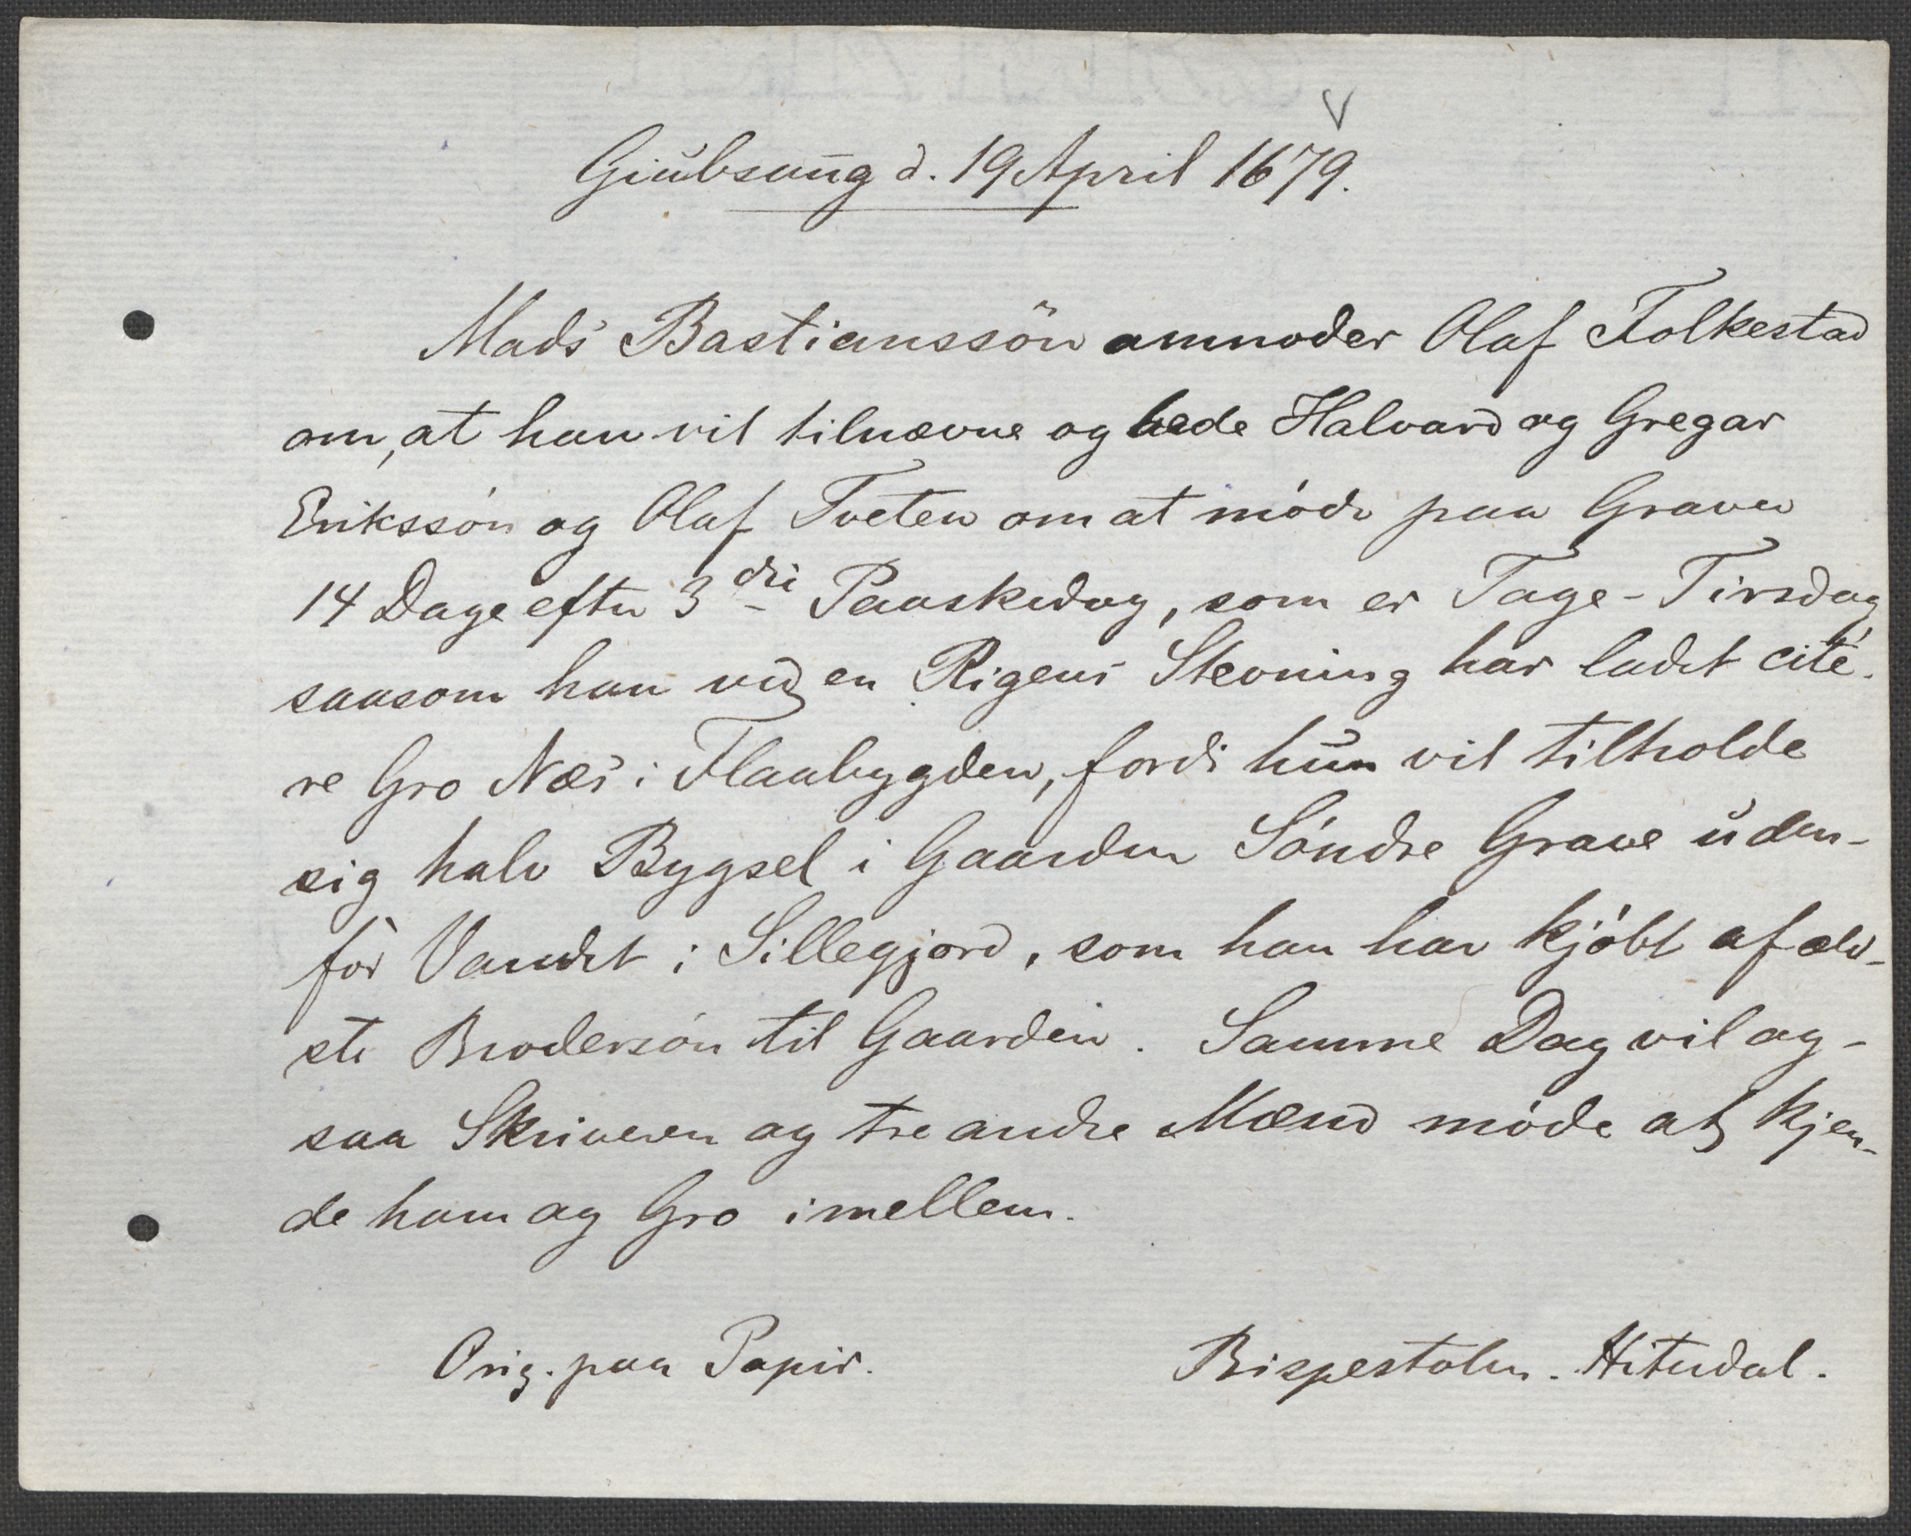 Giubsung d. 19 April 1679.
Mads Bastianssön anmoder Olaf Folkestad
om, at han vil tilnævne og bede Halvard og Gregar
Erikssön og Olaf Tveten om at möde paa Graver
14 Dage efter 3die Paaskedag, som er Tage-Tirsdag,
saasom han ved en Rigens Stevning har ladet cite-
re Gro Næs i Flaabygden, fordi hun vil tilholde
sig halv Bygsel i Gaarden Söndre Grave uden-
för Vandet i Sillegjord, som han har kjöbt af æld-
ste Brodersön til Gaarden. Samme Dag vil og-
saa Skriveren og tre andre Mænd möde at kjen-
de ham og Gro imellem.
Orig. paa Papir.
Bispestolen. Hiterdal.